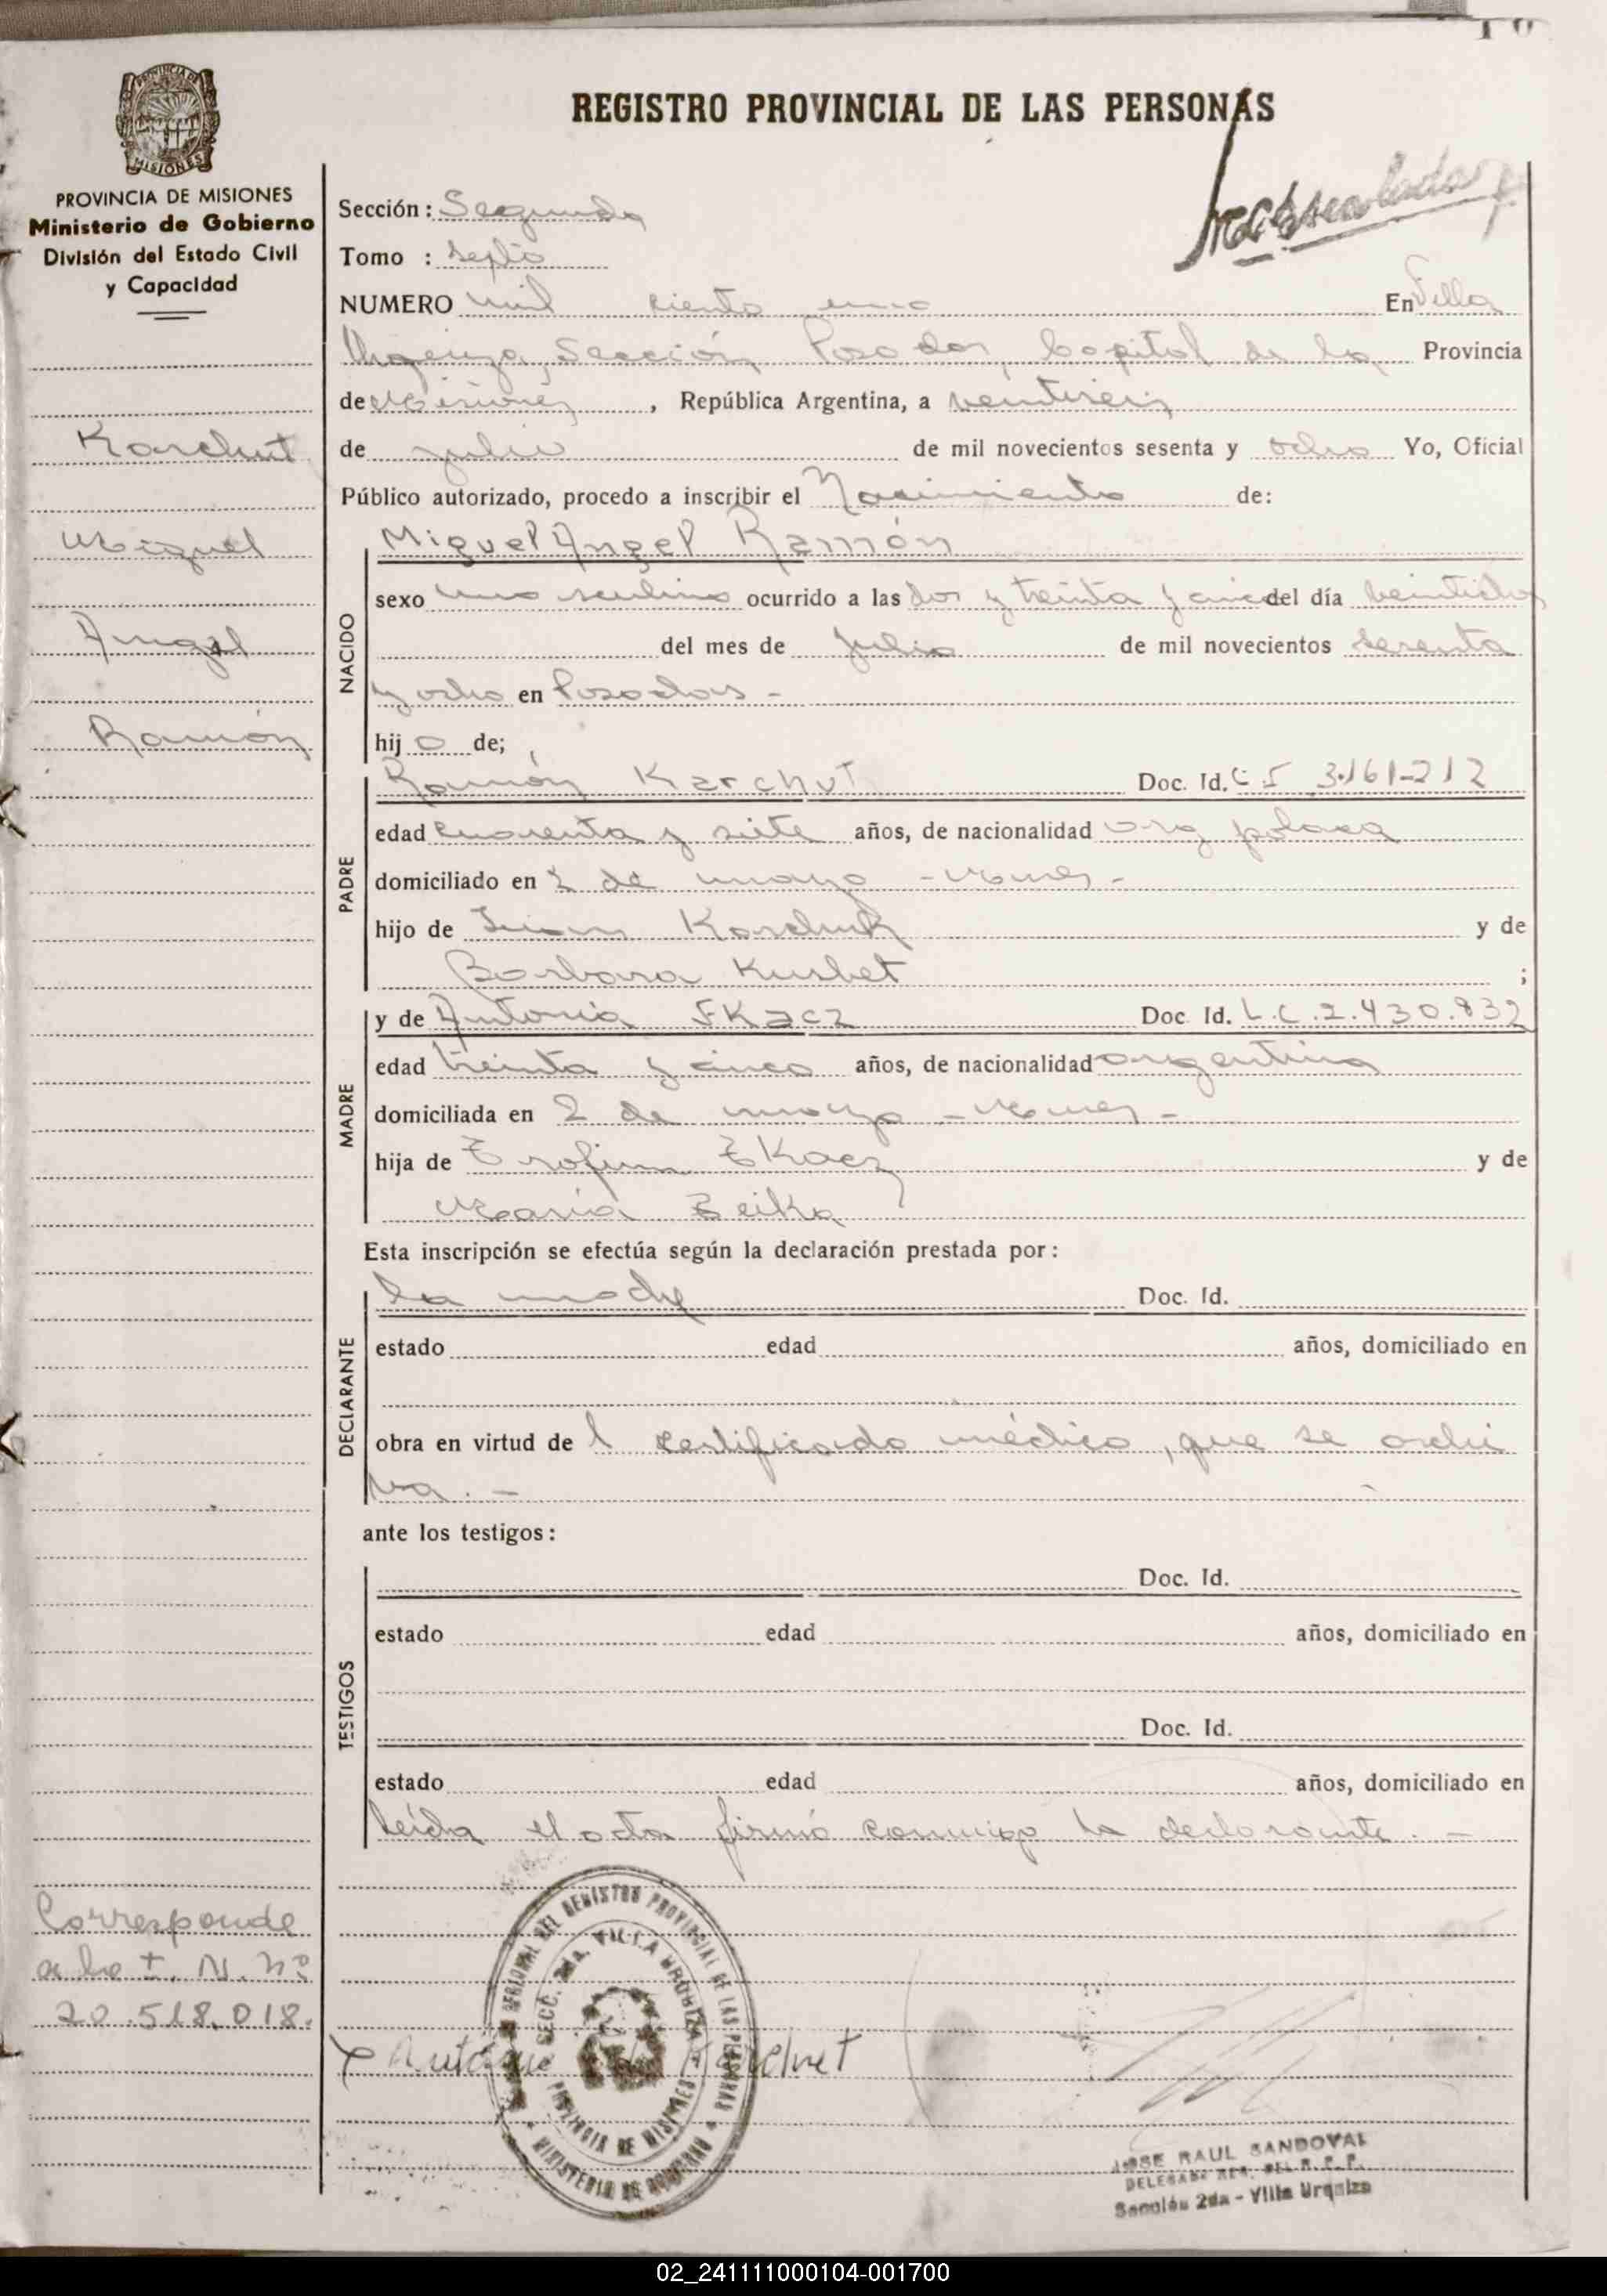 REGISTRO PROVINCIAL DE LAS PERSONAS
PROVINCIA DE MISIONES
Ministerio de Gobierno
División del Estado Civil
y Capacidad
Karchut
Miguel
Angel
Ramón
Corresponde
a la L. N. nº
20.518.018.
Sección: Segunda
Tomo : septo
NUMERO mil ciento uno En Villa
Urquiza, Sección Posadas, Capital de la Provincia
de Misiones, República Argentina, a veintiseis
de julio de mil novecientos sesenta y ocho Yo, Oficial
Público autorizado, procedo a inscribir el Nacimiento de:
NACIDO
Miguel Angel Ramón
sexo masculino ocurrido a las dos y treinta y cinco del día veintidos
del mes de julio de mil novecientos sesenta
y ocho en Posadas -
hijo de;
PADRE
Ramón Karchut Doc. Id. C I 3.161-212
edad cuarenta y siete años, de nacionalidad arg polaca
domiciliado en 2 de mayo - Mnes -
hijo de Karchuk y de
Barbara Kushet ;
MADRE
y de Antonia SKacz Doc. Id. L.C.2.430.832
edad treinta y cinco años, de nacionalidad argentina
domiciliada en 2 de mayo - Mnes -
hija de Trofim y de
María Zeika
Esta inscripción se efectúa según la declaración prestada por:
DECLARANTE
la madre Doc. Id.
estado edad años, domiciliado en
obra en virtud del certificado médico, que se archi
va. -
ante los testigos:
TESTIGOS
Doc. Id.
estado edad años, domiciliado en
Doc. Id.
estado edad años, domiciliado en
leída el acta firmó conmigo la declarante. -
Karchut
REGIONAL DEL REGISTRO PROVINCIAL DE LAS PERSONAS
SECC. 2da. VILLA URQUIZA
PROVINCIA DE MISIONES
MINISTERIO DE GOBIERNO
JOSE RAUL SANDOVAL
DELEGADO REG. DEL R. P. P.
Sección 2da - Villa Urquiza
02_241111000104-001700